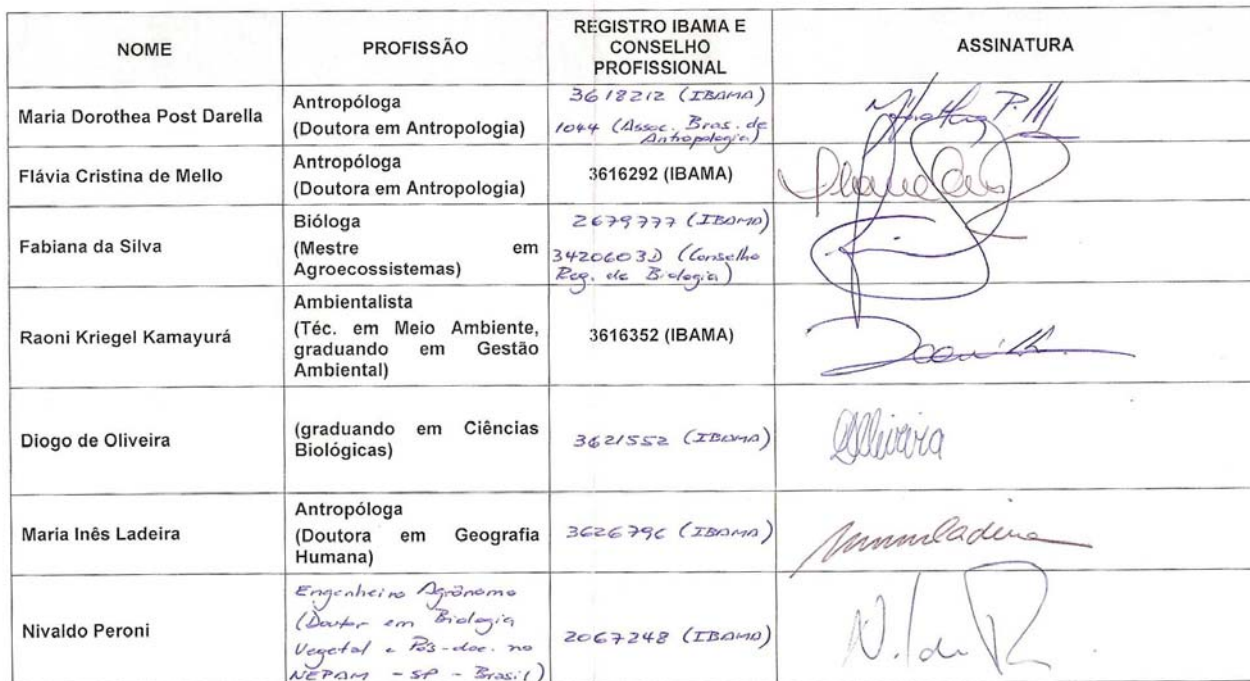 NOME PROFISSÃO REGISTRO IBAMA E CONSELHO PROFISSIONAL ASSINATURA
Maria Dorothea Post Darella
Antropóloga
(Doutora em Antropologia)
3618212 (IBAMA)
1044 (Assoc. Bras. de
Antropologia)
Flávia Cristina de Mello
Antropóloga
(Doutora em Antropologia)
3616292 (IBAMA)
Fabiana da Silva
Bióloga
(Mestre em
Agroecossistemas)
2679777 (IBAMA)
3420603D (Conselho
Reg. de Biologia)
Raoni Kriegel Kamayurá
Ambientalista
(Téc. em Meio Ambiente,
graduando em Gestão
Ambiental)
3616352 (IBAMA)
Diogo de Oliveira
(graduando em Ciências
Biológicas)
3621552 (IBAMA)
DOliveira
Maria Inês Ladeira
Antropóloga
(Doutora em Geografia
Humana)
3626796 (IBAMA)
Nivaldo Peroni
Engenheiro Agrônomo
(Doutor em Biologia
Vegetal e Pós-doc. no
NEPAM - SP - Brasil)
2067248 (IBAMA)